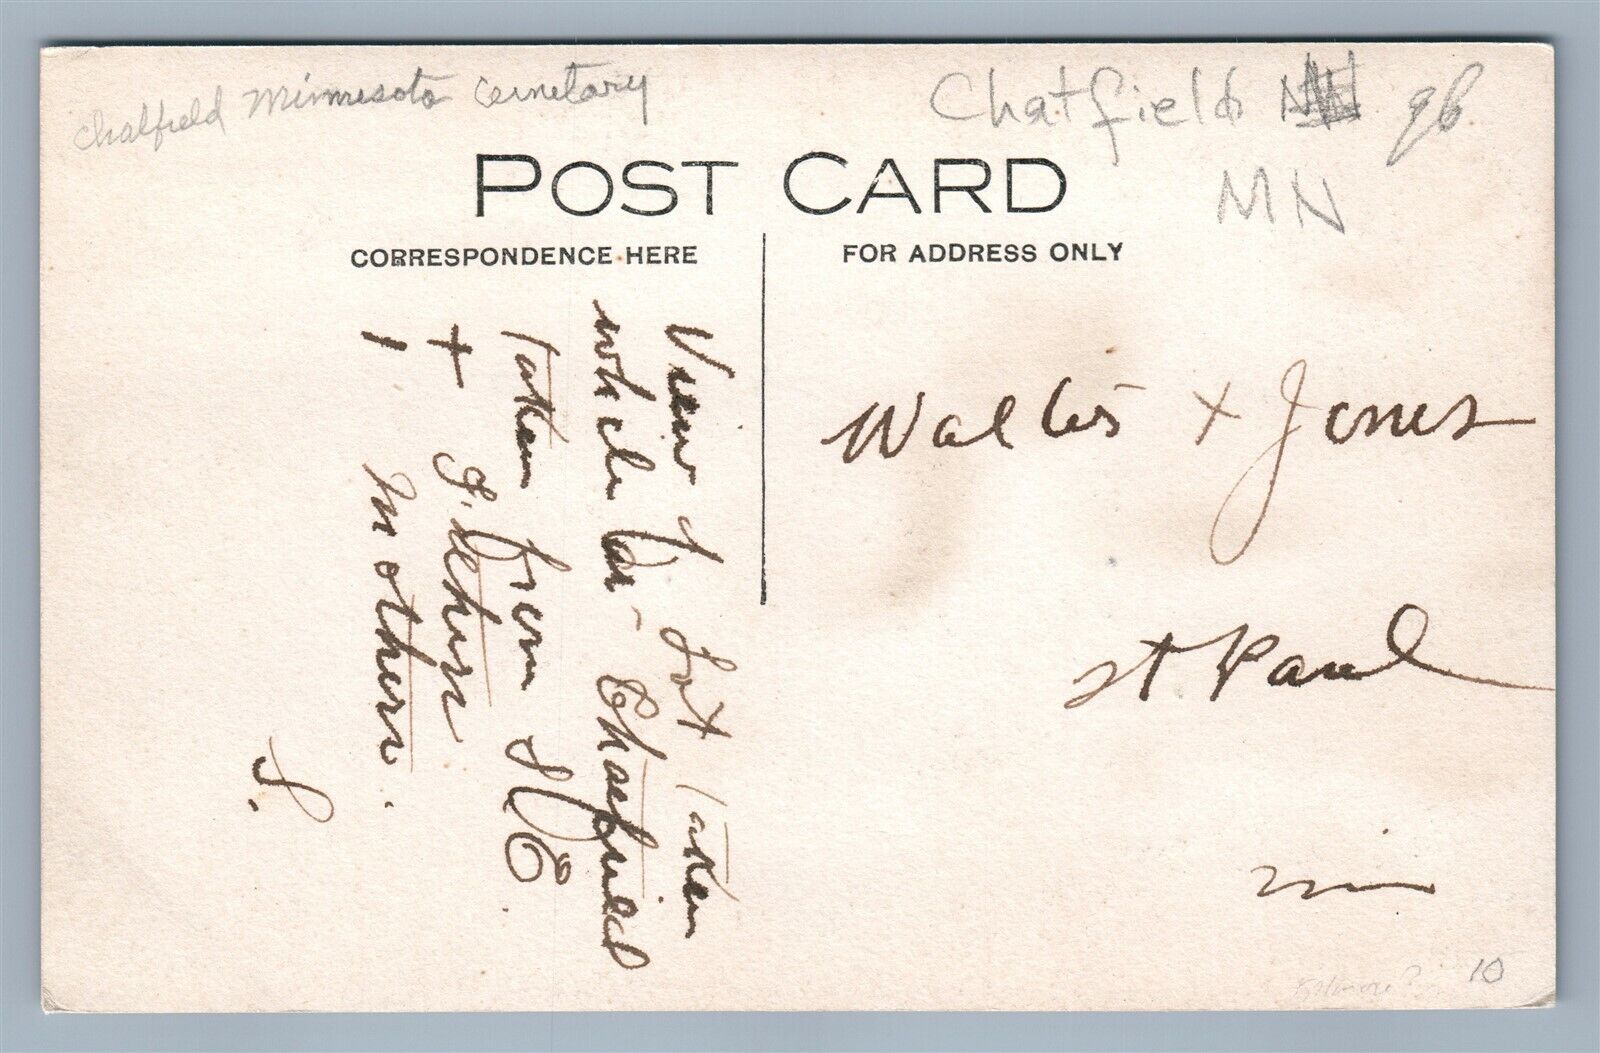 Chatfield Minnesota Cemetary
Chatfield MN
MN
POST CARD
CORRESPONDENCE HERE
FOR ADDRESS ONLY
View of Lot Taken
while in Chatfield
Taken from S E
+
Mother.
S.
Walter + Jones
St Paul
Min
10